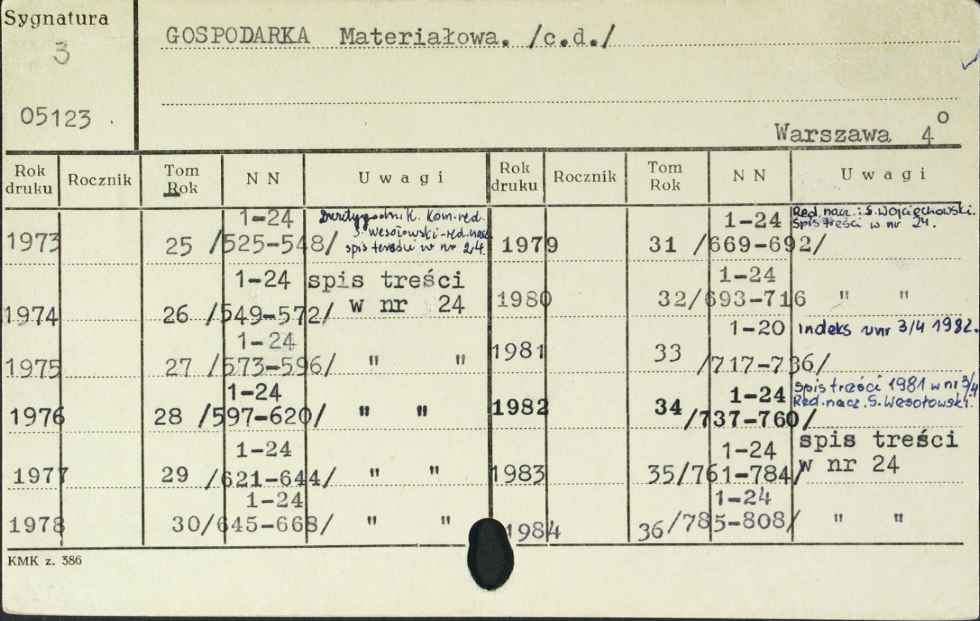 Sygnatura
3
05123 .
GOSPODARKA Materiałowa. /c.d./
Warszawa 4°
Rok druku Rocznik Tom Rok NN Uwagi Rok druku Rocznik Tom Rok NN Uwagi
1973 25 1-24 /525-548/ Dwutygodnik. Kom. red.
S. Wesołowski-red. nacz.
spis treści w nr 24.
1974 26 1-24 /549-572/ spis treści
w nr 24
1975 27 1-24 /573-596/ " "
1976 28 1-24 /597-620/ " "
1977 29 1-24 /621-644/ " "
1978 30 1-24 /645-668/ " "
1979 31 1-24 /669-692/ Red. nacz.: S. Wojciechowski.
Spis treści w nr 24.
1980 32 1-24 /693-716 " "
1981 33 1-20 /717-736/ indeks w nr 3/4 1982.
1982 34 1-24 /737-760/ Spis treści 1981 w nr 3/4
Red. nacz. S. Wesołowski.
1983 35 1-24 /761-784/ spis treści
w nr 24
1984 36 1-24 /785-808/ " "
KMK z. 386